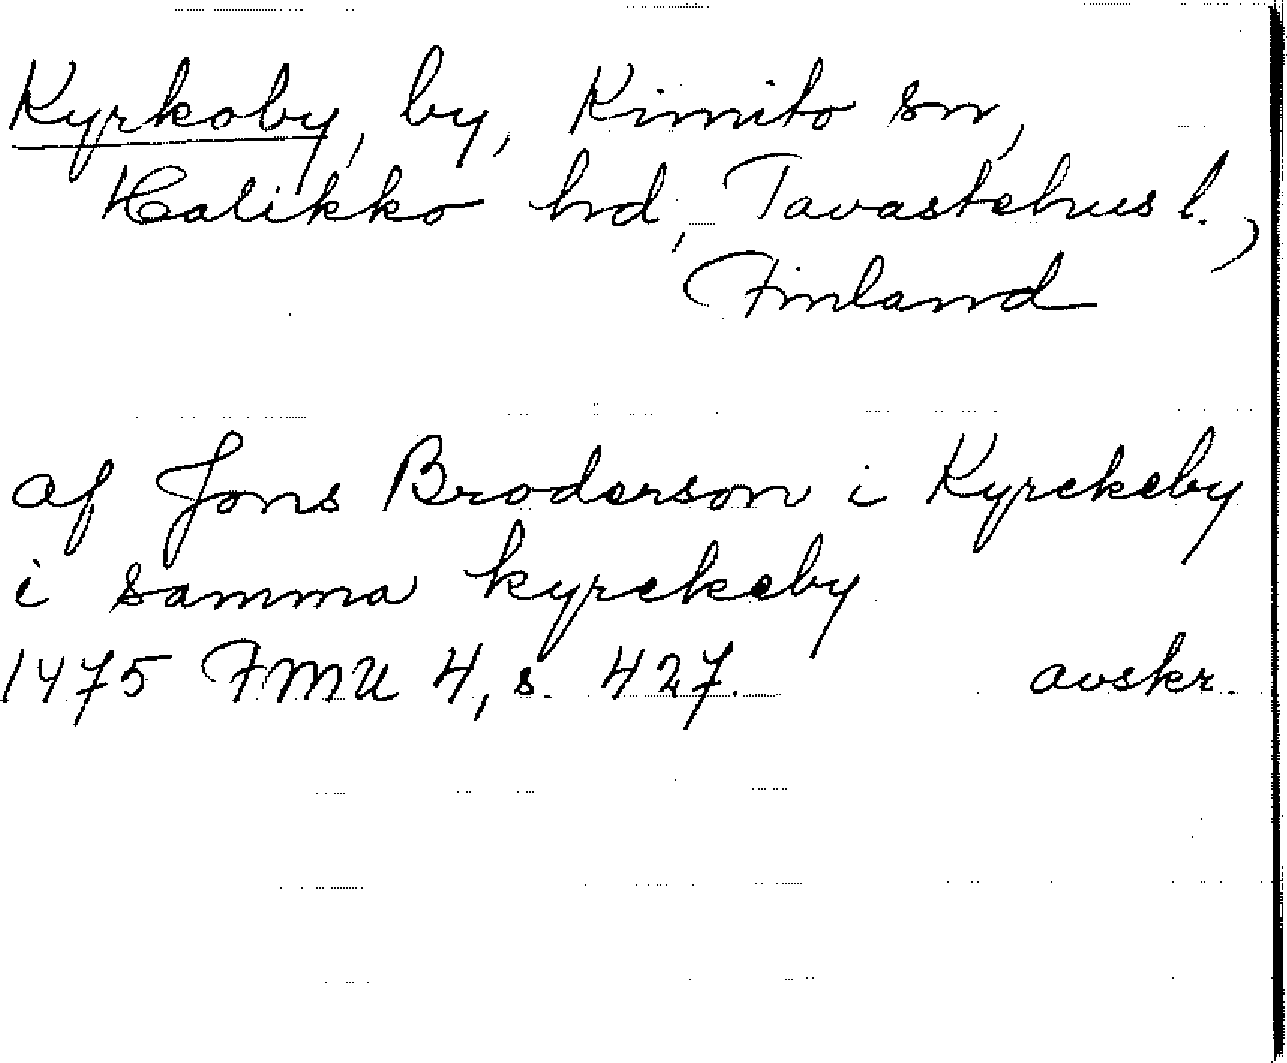 Kyrkoby, by, Kimito sn,
Halikko hd, Tavastehus l.,
Finland
af Jons Broderson i Kyrckeby
i samma kyrckeby
1475 FMU 4, s. 427. avskr.